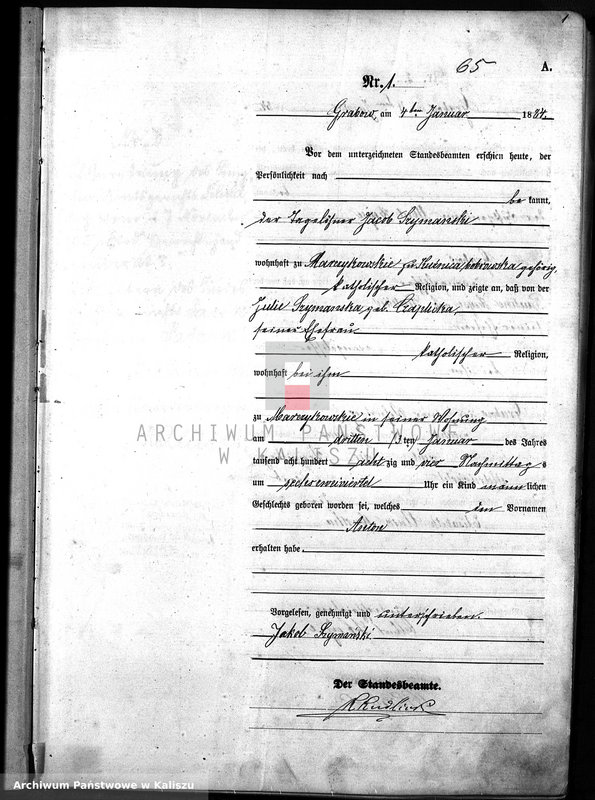 1
65
A.
Nr. 1.
Grabow, am 4ten Januar 1884.
Vor dem unterzeichneten Standesbeamten erschien heute, der
Persönlichkeit nach
bekannt,
der Tagelöhner Jacob Szymański
wohnhaft zu Marszykowskie gehörig,
katholischer Religion, und zeigte an, daß von der
Julie Szymańska geb. Czaplicka,
seiner Ehefrau
katholischer Religion,
wohnhaft bei ihm
zu in seiner Wohnung
am dritten /3ten Januar des Jahres
tausend acht hundert achtzig und vier Nachmittags
um Uhr ein Kind männlichen
Geschlechts geboren worden sei, welches Vornamen
Anton
erhalten habe.
Vorgelesen, genehmigt und unterschrieben.
Jakob Szymański
Der Standesbeamte.
ARCHIWUM PAŃSTWOWE
W KALISZU
Archiwum Państwowe w Kaliszu